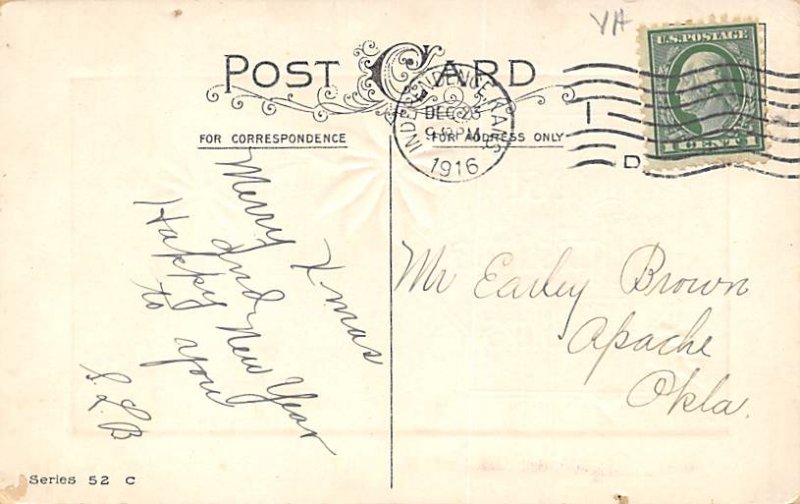 VA
U.S. POSTAGE
POST CARD
INDEPENDENCE, KANS.
DEC 23
9-PM
1916
1 CENT 1
D
FOR CORRESPONDENCE
FOR ADDRESS ONLY
Merry Xmas
and
Happy New Year
to you
S.L.B
Mr Earley Brown
Apache
Okla.
Series 52 C